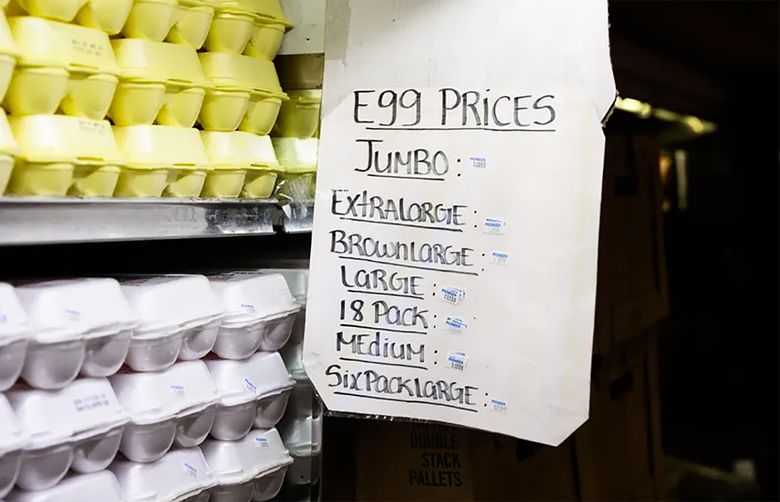 Egg Prices
Jumbo:
Extralarge:
Brown large:
Large:
18 Pack:
Medium:
Six Pack Large:
DOUBLE
STACK
PALLETS